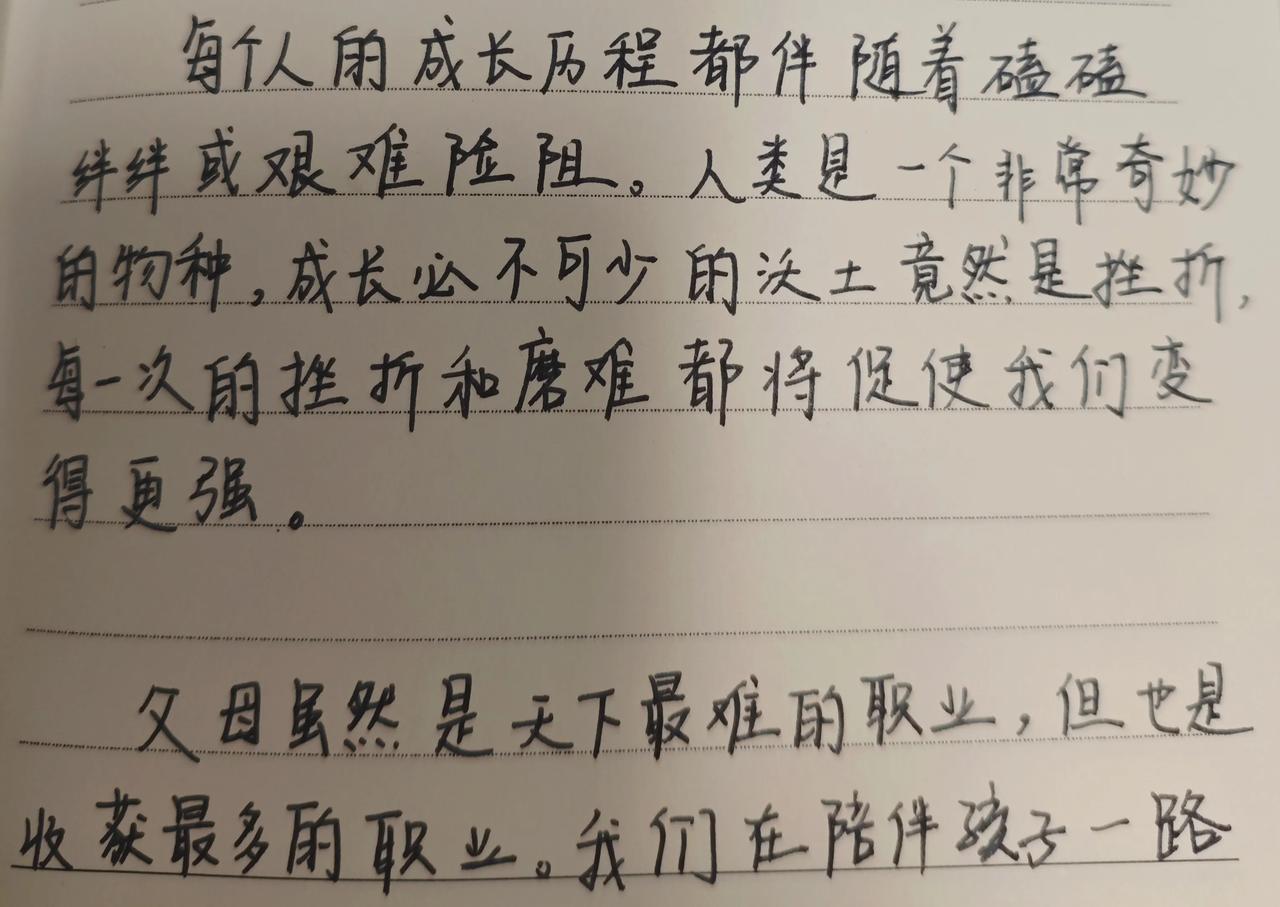 每个人的成长历程都伴随着磕磕
绊绊或艰难险阻。人类是一个非常奇妙
的物种,成长必不可少的沃土竟然是挫折,
每一次的挫折和磨难都将促使我们变
得更强。
父母虽然是天下最难的职业,但也是
收获最多的职业。我们在陪伴孩子一路